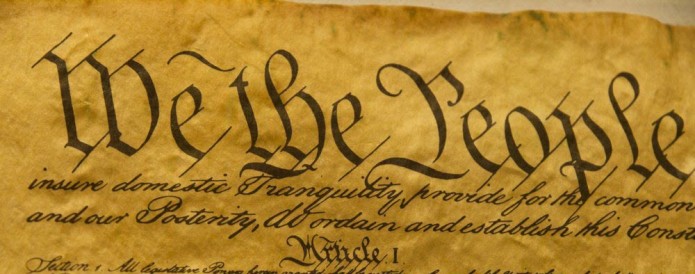 We the People
insure domestic Tranquility, provide for the common
and our Posterity, do ordain and establish this Const
Article I
Section 1 All legislative Powers herein